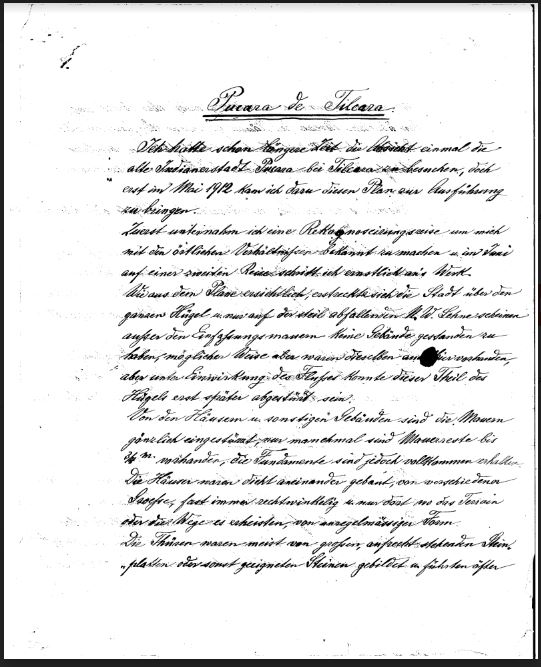 1.
Pucara de Tilcara.
Ich hatte schon längere Zeit die Absicht einmal die
alte Indianerstadt Pucara bei Tilcara zu besuchen, doch
erst im Mai 1912 kam ich dazu diesen Plan zur Ausführung
zu bringen.
Zuerst unternahm ich eine Rekognoscierungsreise um mich
mit den örtlichen Verhältnissen bekannt zu machen u. im Juni
auf einer zweiten Reise schritt ich ernstlich an's Werk.
Wie aus dem Plane ersichtlich, erstreckte sich die Stadt über den
ganzen Hügel u. nur auf der steil abfallenden N.W Lehne scheinen
außer den Einfassungsmauern keine Gebäude gestanden zu
haben, möglicher Weise aber waren dieselben auch hier vorhanden,
aber unter Einwirkung des Flußes konnte dieser Theil des
Hügels erst später abgestürzt sein.
Von den Häusern u. sonstigen Gebäuden sind die Mauern
gänzlich eingestürzt, nur manchmal sind Mauerreste bis
m. vorhanden, die Fundamente sind jedoch vollkommen erhalten.
Die Häuser waren dicht aneinander gebaut, von verschiedener
Groesse, fast immer rechtwinkelig u. nur dort wo das Terrain
oder die Wege es erheisten, von unregelmässiger Form.
Die Thüren waren meist von großen, aufrecht stehenden Stein-
platten oder sonst geeigneten Steinen gebildet u. führten öfter